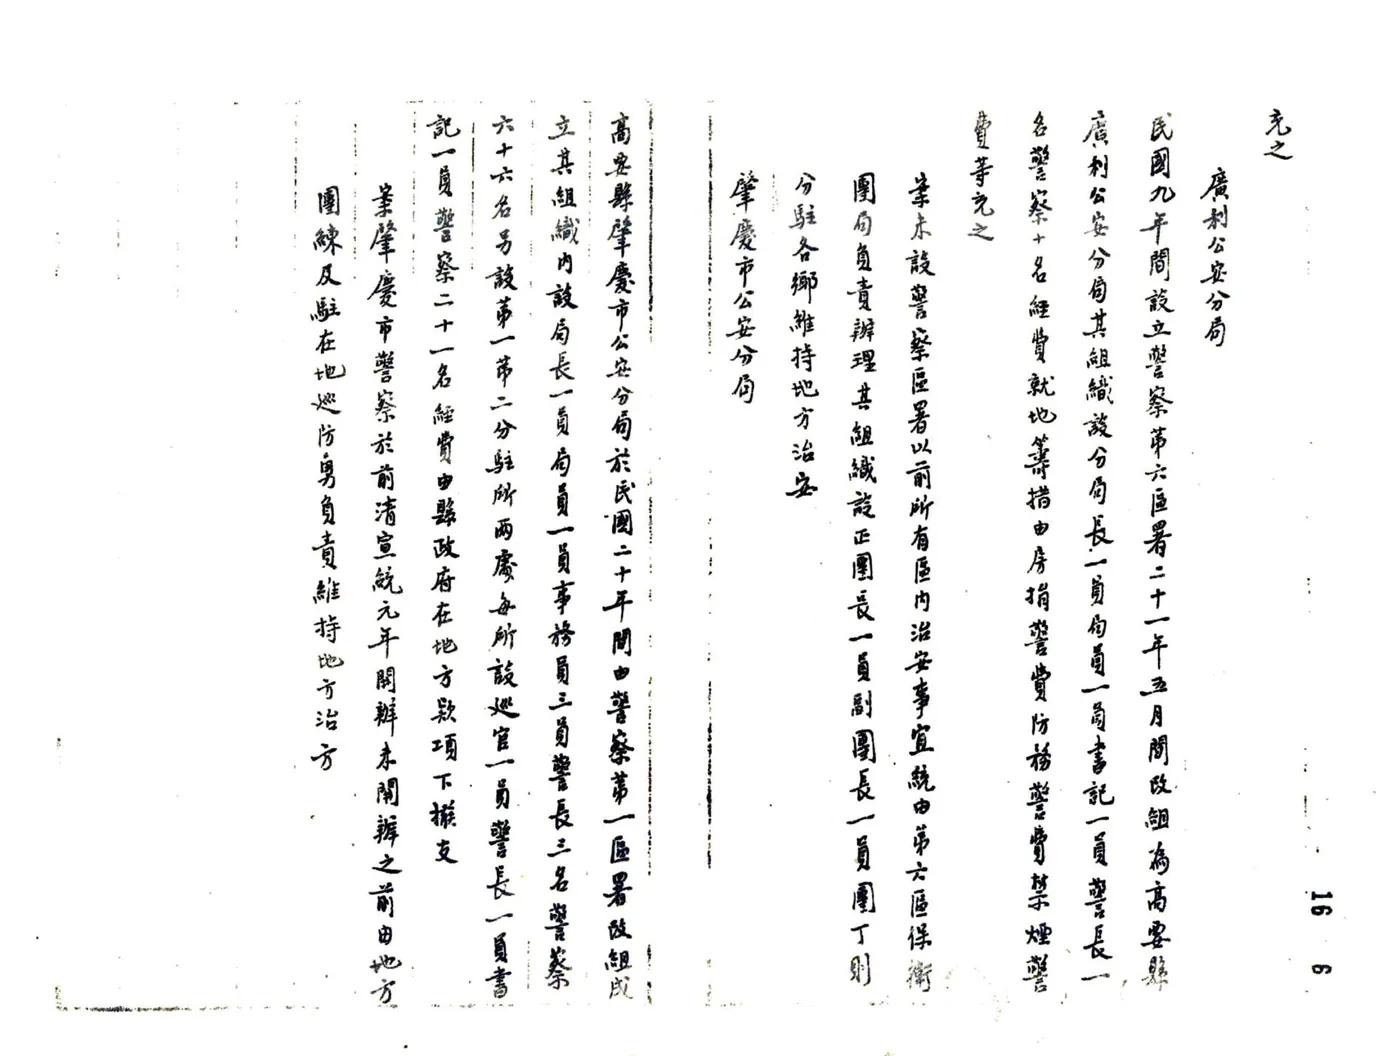 充之
廣利公安分局
民國九年間設立警察第六區署二十一年五月間改組為高要縣
廣利公安分局其組織設分局長一員局員一員書記一員警長一
名警察十名經費就地籌措由房捐警費防務警費禁煙警
費等充之
案未設警察區署以前所有區內治安事宜統由第六區保衛
團局負責辦理其組織設正團長一員副團長一員團丁則
分駐各鄉維持地方治安
肇慶市公安分局
高要縣肇慶市公安分局於民國二十年間由警察第一區署改組成
立其組織內設局長一員局員一員事務員三員警長三名警察
六十六名另設第一第二分駐所兩處每所設巡官一員警長一員書
記一員警察二十一名經費由縣政府在地方款項下撥支
案肇慶市警察於前清宣統元年開辦未開辦之前由地方
團練及駐在地巡防勇負責維持地方治方
16 6